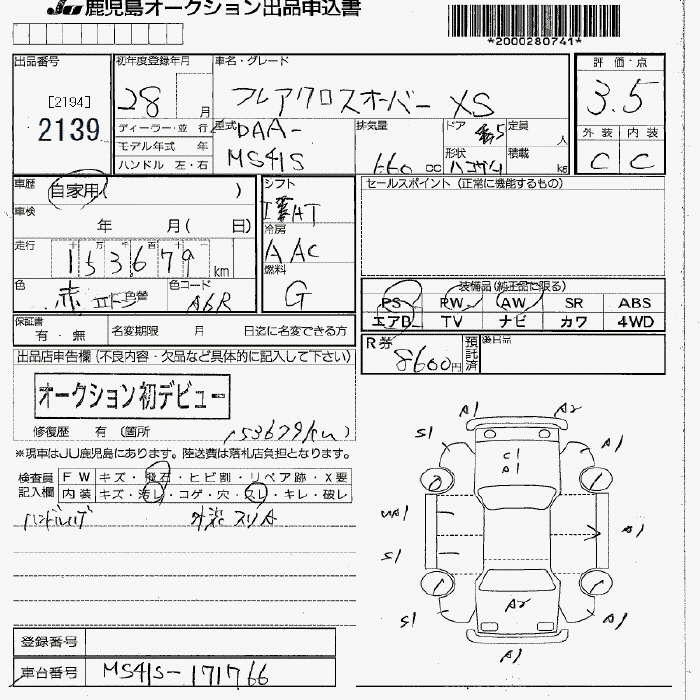 JU 鹿児島オークション出品申込書
*2000280741*
出品番号
[2194]
2139
初年度登録年月
28 月
車名・グレード
フレアクロスオーバー XS
評価・点
3.5
ディーラー・並行
モデル年式 年
ハンドル 左・右
型式
DAA-
MS41S
排気量
660 cc
ドア
5
形状
定員
人
積載
kg
外装 内装
C C
車歴
自家用( )
車検
年 月( 日)
走行
十 万 千 百 十
153679 km
色
赤 色替
色コード
A6R
シフト
AT
冷房
AAC
燃料
G
セールスポイント (正常に機能するもの)
装備品(純正品に限る)
PS PW AW SR ABS
エアB TV ナビ カワ 4WD
保証書
有・無
名変期限 月 日迄に名変できる方
R券
8600円
預託済
後日品
出品店申告欄(不良内容・欠品など具体的に記入して下さい)
オークション初デビュー
修復歴 有 (箇所
153679km
※現車はJU鹿児島にあります。陸送費は落札店負担となります。
検査員
記入欄
FW キズ・飛石・ヒビ割・リペア跡・X要
内装 キズ・汚レ・コゲ・穴・スレ・キレ・破レ
ハンドルハゲ 外装スリA
A1 A2
S1 A1
C1
A1
UA1
A1
S1
A2
S1 A1
A1
登録番号
車台番号 MS41S-171766